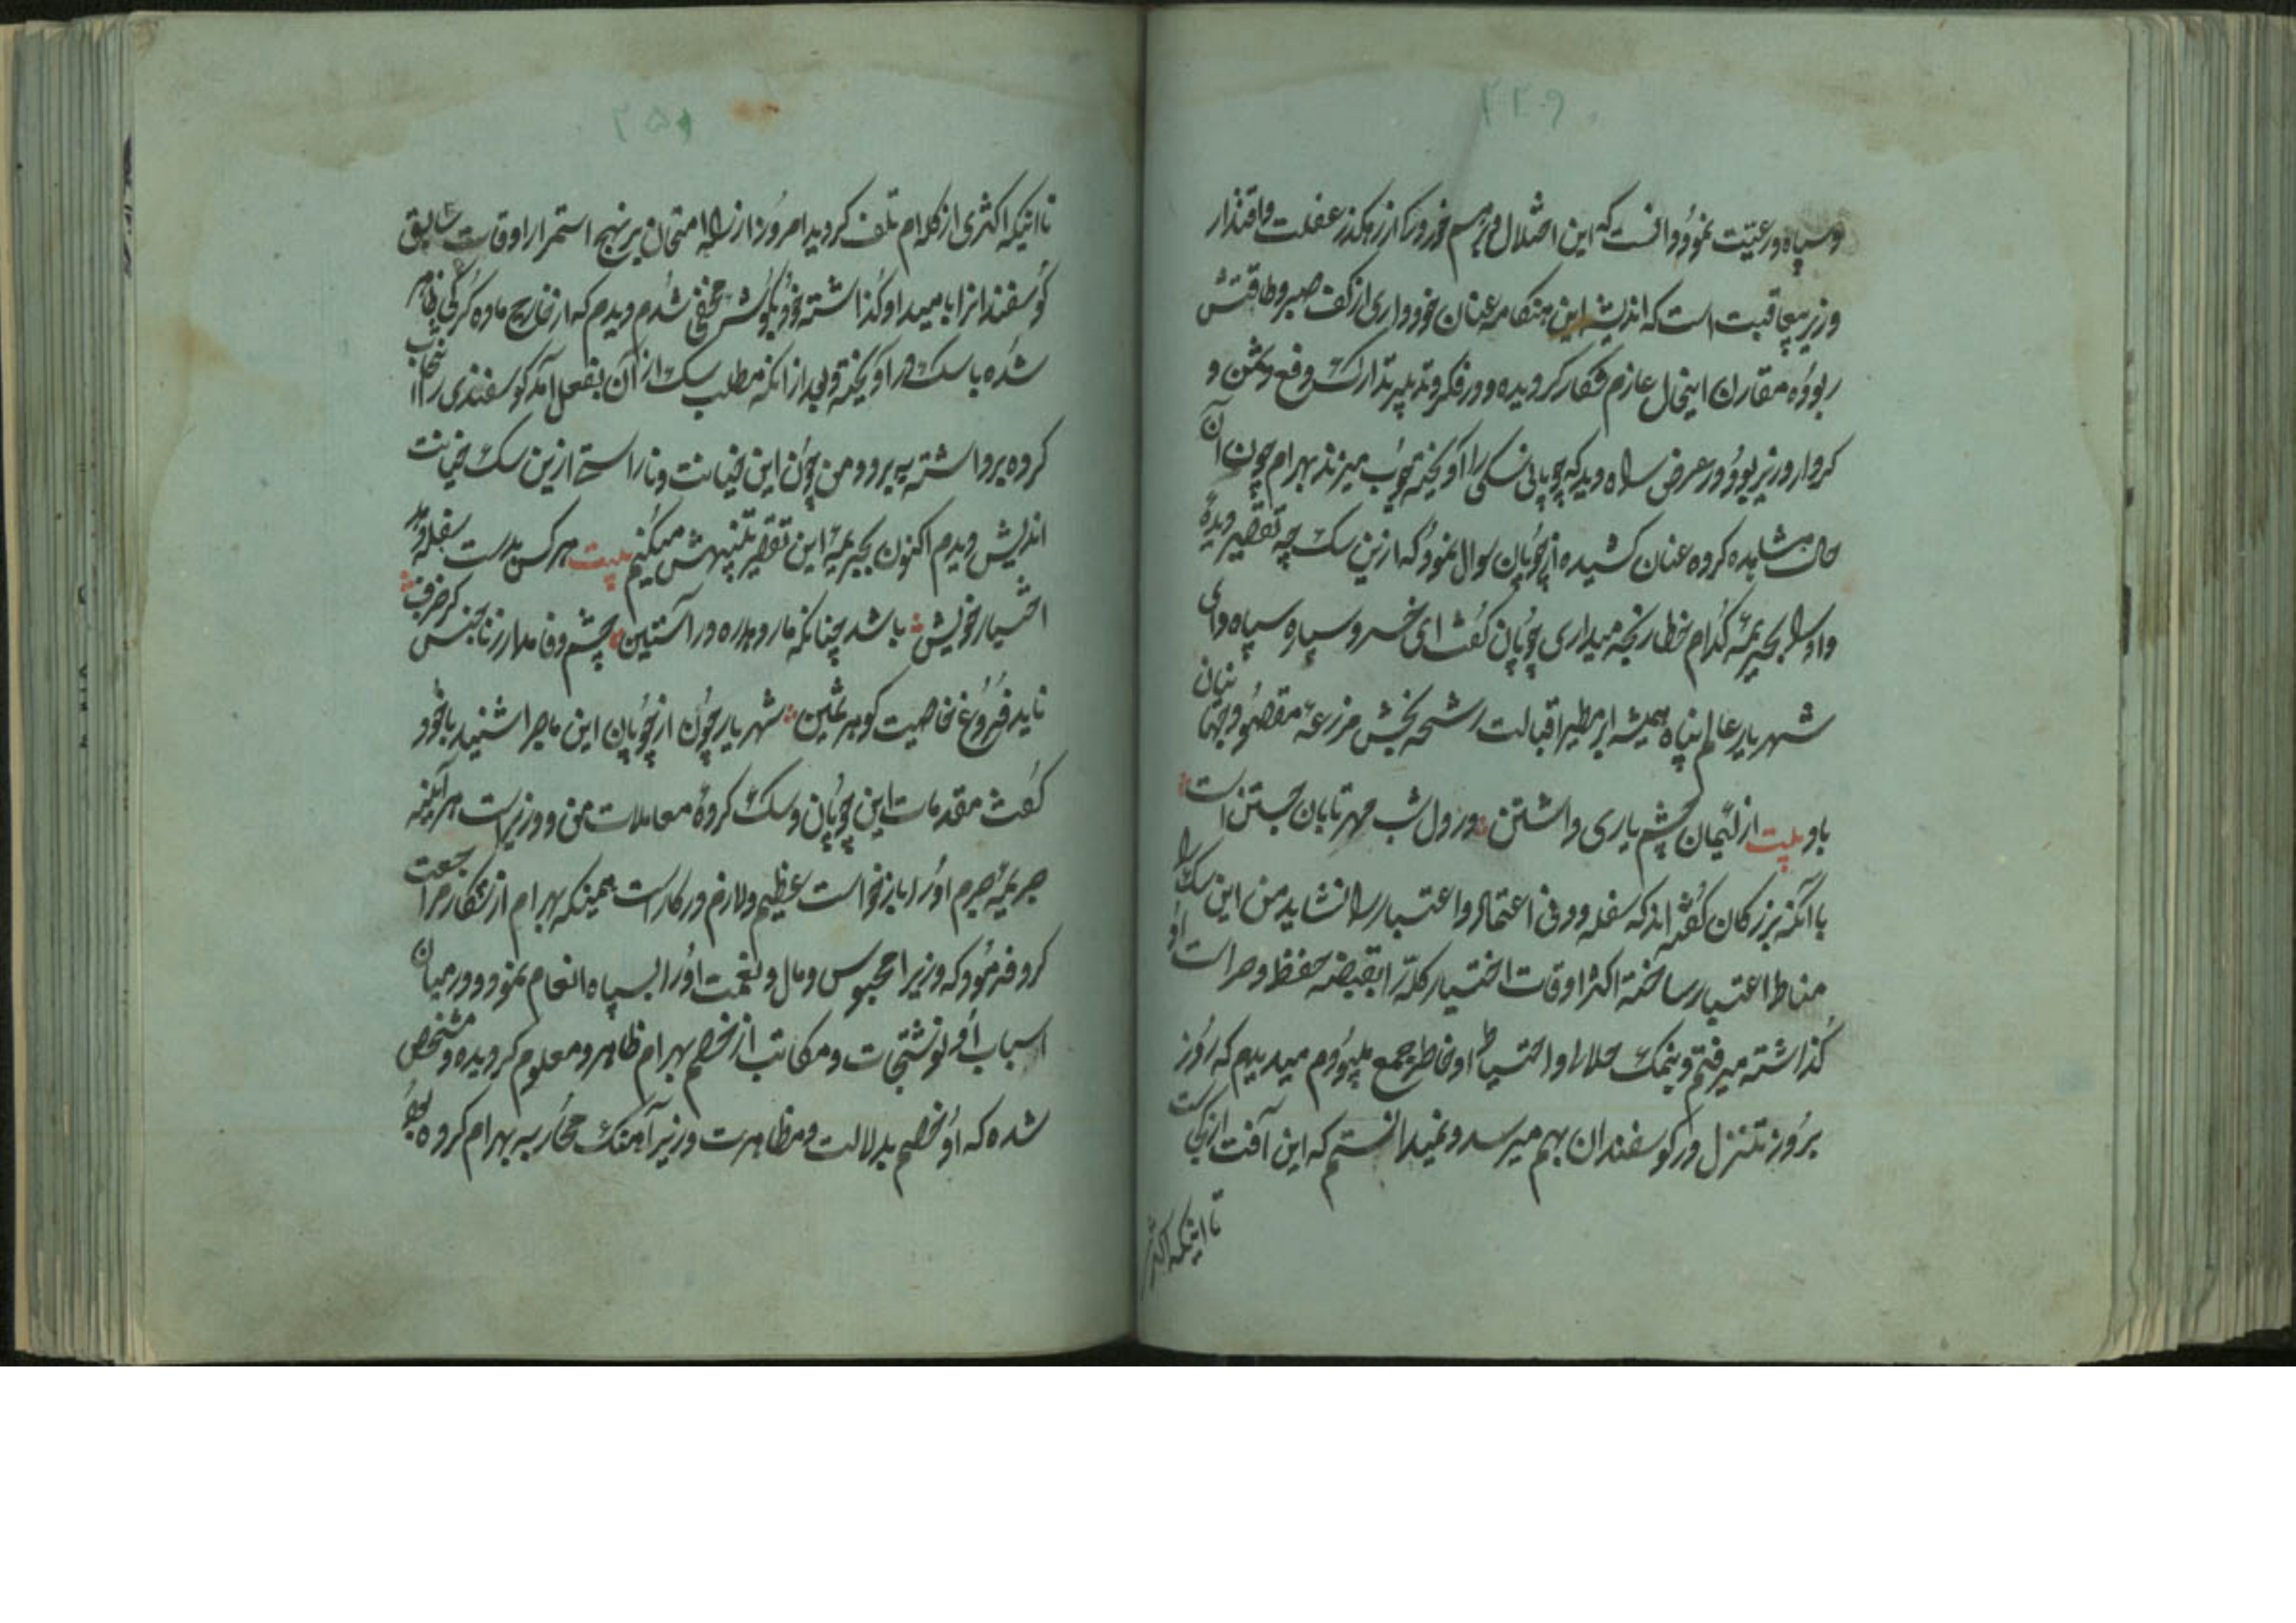 ۲۴۹
و سپاه و رعیت نمود و دانست که این اختلال و برهم خوردگی از رهگذر غفلت و اقتدار
وزیر بیعاقبت است که اندیشه این هنگامه عنان خودداری از کف صبر و طاقتش
ربوده مقارن اینحال عازم شکار گردیده و در فکر و تدبیر تدارک دفع دشمن و
کردار وزیر بود در عرض راه دید که چوپانی سگی را آویخته چوب میزند بهرام چون آن
حال مشاهده کرده عنان کشیده از چوپان سوال نمود که ازین سگ چه تقصیر دیدهٔ
و او را بجریمه کدام خطا رنجه میداری چوپان گفت ای خسرو سپاه سپاه دای
شهریار عالم پناه همیشه ابر مطیر اقبالت رشحه بخش مزرعه مقصود جهانیان
باد بیت از لئیمان چشم یاری داشتن در دل شب مهر تابان جستن است
با آنکه بزرگان گفته اند که سفله و دنی اعتماد و اعتبار را نشاید من این سگ را
مناط اعتبار ساخته اکثر اوقات اختیار گله را بقبضه حفظ و حراست او
گذاشته میرفتم و بنمک حلالی و احتیاط او خاطر جمع میبودم میدیدم که روز
بروز تنزل در گوسفندان بهم میرسد و نمیدانستم که این آفت از کیست
تا اینکه اکثر
۲۵۰
تا اینکه اکثری از گله ام تلف گردید امروز از راه امتحان بر نهج استمرار اوقات سابق
گوسفندانرا بامید او گذاشته خود بگوشه مخفی شدم دیدم که از خارج ماده گرگی ظاهر
شده با سگ در آویخته و بعد از آنکه مطلب سگ از آن بفعل آمد گوسفندی را انتخاب
کرده برداشته به برد و من چون این خیانت و ناراستی ازین سگ خیانت
اندیش دیدم اکنون بجریمه این تقصیر تنبیهش میکنم بیت هر کس بدست سفله دهد
اختیار خویش باشد چنانکه مار دهد ره در آستین چشم وفا مدار ز ناجنس کز خزف
ناید فروغ خاصیت گوهر ثمین شهریار چون از چوپان این ماجرا شنید با خود
گفت مقدمات این چوپان و سگ کرده معاملات من و وزیر است هر آینه
جریمه جرم او را بازخواست عظیم و لازم در کار است همینکه بهرام از شکار مراجعت
کرد فرمود که وزیر را محبوس و مال و نعمت او را بسپاه انعام نمود و در میان
اسباب او نوشتجات و مکاتب از خصم بهرام ظاهر و معلوم گردیده و مشخص
شده که او خصم بدلالت و مظاهرت وزیر آهنگ محاربه بهرام کرده بود